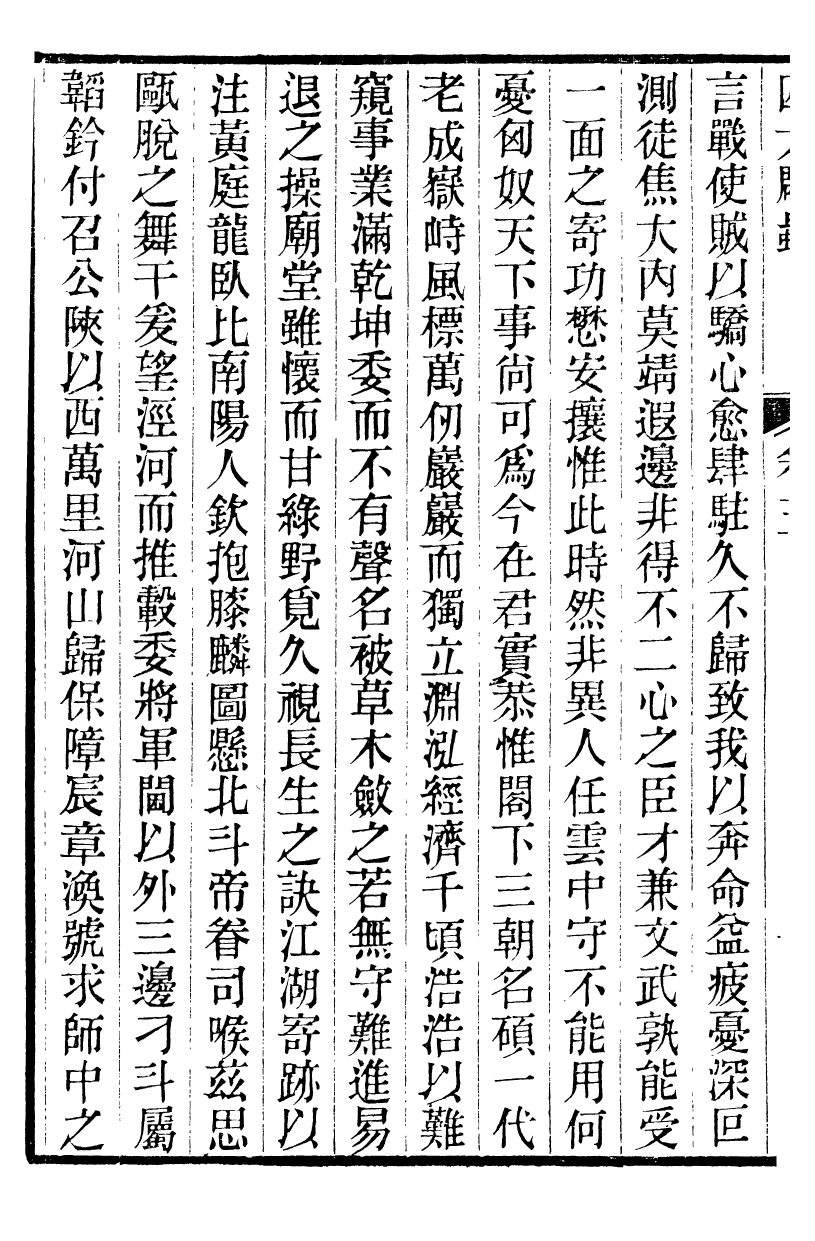 言戰使賊以驕心愈肆駐久不歸致我以奔命益疲憂深叵
測徒焦大內莫靖遐邊非得不二心之臣才兼文武孰能受
一面之寄功懋安攘惟此時然非異人任雲中守不能用何
憂匈奴天下事尚可爲今在君實恭惟閣下三朝名碩一代
老成嶽峙風標萬仞巖巖而獨立淵泓經濟千頃浩浩以難
窺事業滿乾坤委而不有聲名被草木斂之若無守難進易
退之操廟堂雖懷而甘綠野覓久視長生之訣江湖寄跡以
注黃庭龍臥比南陽人欽抱膝麟圖懸北斗帝眷司喉茲思
甌脫之舞干爰望涇河而推轂委將軍閫以外三邊刁斗屬
韜鈐付召公陝以西萬里河山歸保障宸章渙號求師中之